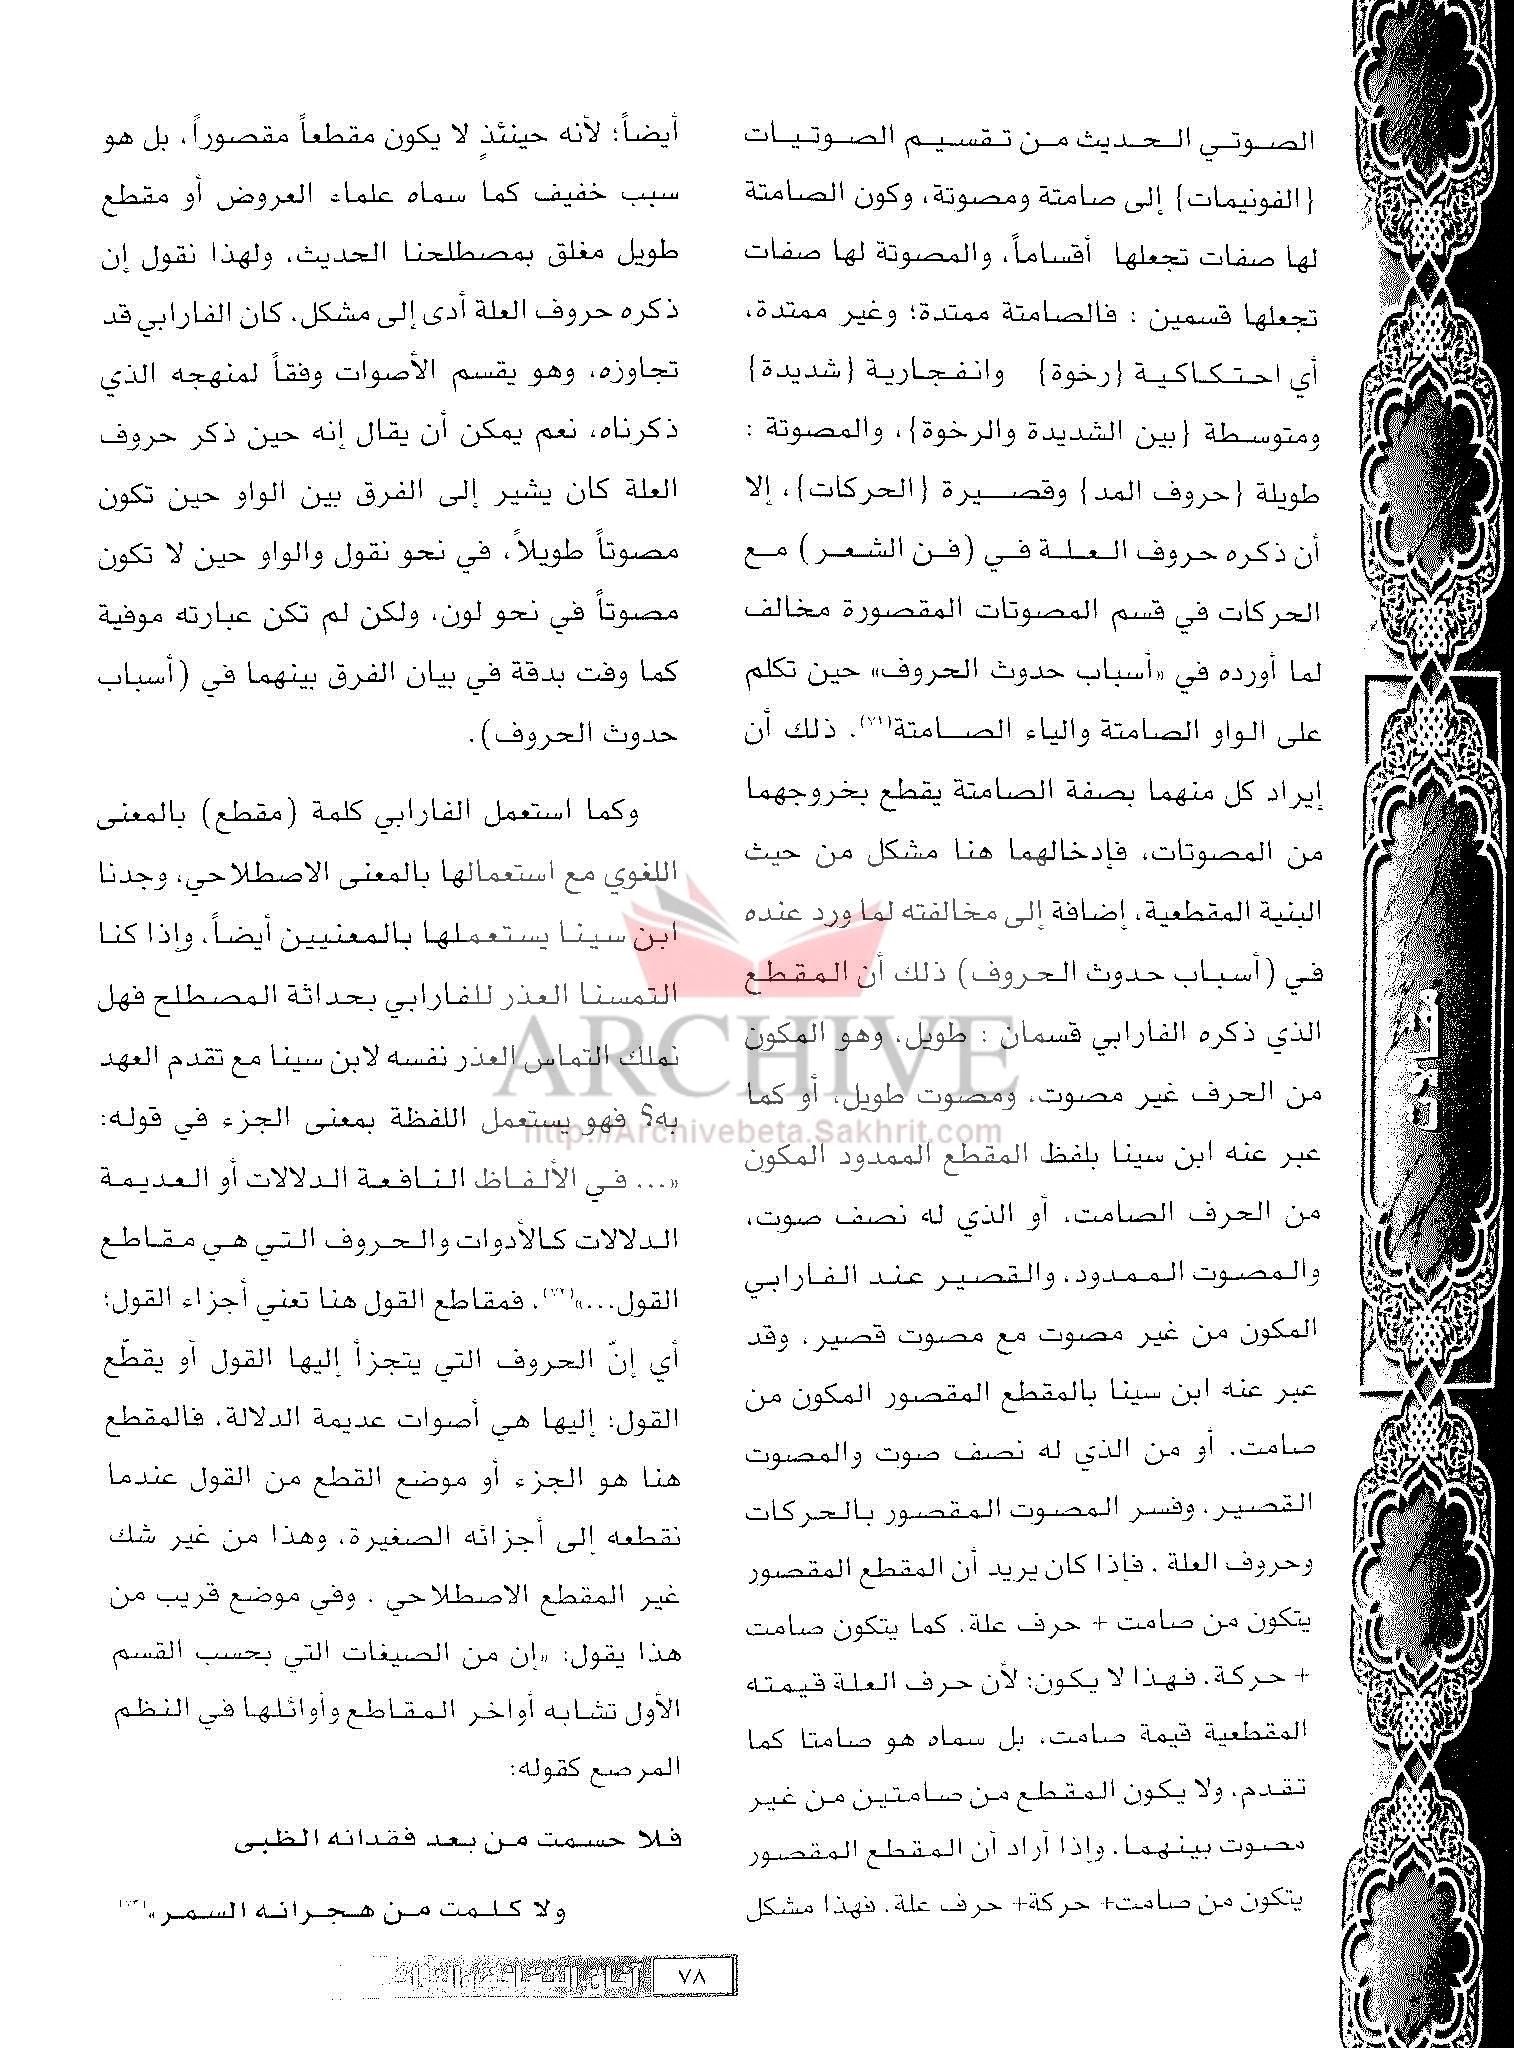 الصوتي الحديث من تقسيم الصوتيات
{الفونيمات} إلى صامتة ومصوتة، وكون الصامتة
لها صفات تجعلها أقساماً، والمصوتة لها صفات
تجعلها قسمين : فالصامتة ممتدة؛ وغير ممتدة،
أي احتكاكية {رخوة} وانفجارية {شديدة}
ومتوسطة {بين الشديدة والرخوة}، والمصوتة :
طويلة {حروف المد} وقصيرة {الحركات}، إلا
أن ذكره حروف العلة في (فن الشعر) مع
الحركات في قسم المصوتات المقصورة مخالف
لما أورده في «أسباب حدوث الحروف» حين تكلم
على الواو الصامتة والياء الصامتة(٧١). ذلك أن
إيراد كل منهما بصفة الصامتة يقطع بخروجهما
من المصوتات، فإدخالهما هنا مشكل من حيث
البنية المقطعية، إضافة إلى مخالفته لما ورد عنده
في (أسباب حدوث الحروف) ذلك أن المقطع
الذي ذكره الفارابي قسمان : طويل، وهو المكون
من الحرف غير مصوت، ومصوت طويل، أو كما
عبر عنه ابن سينا بلفظ المقطع الممدود المكون
من الحرف الصامت، أو الذي له نصف صوت،
والمصوت الممدود، والقصير عند الفارابي
المكون من غير مصوت مع مصوت قصير، وقد
عبر عنه ابن سينا بالمقطع المقصور المكون من
صامت، أو من الذي له نصف صوت والمصوت
القصير، وفسر المصوت المقصور بالحركات
وحروف العلة . فإذا كان يريد أن المقطع المقصور
يتكون من صامت + حرف علة، كما يتكون صامت
+ حركة، فهذا لا يكون؛ لأن حرف العلة قيمته
المقطعية قيمة صامت، بل سماه هو صامتا كما
تقدم، ولا يكون المقطع من صامتين من غير
مصوت بينهما، وإذا أراد أن المقطع المقصور
يتكون من صامت+ حركة+ حرف علة، فهذا مشكل
أيضاً؛ لأنه حينئذٍ لا يكون مقطعاً مقصوراً، بل هو
سبب خفيف كما سماه علماء العروض أو مقطع
طويل مغلق بمصطلحنا الحديث، ولهذا نقول إن
ذكره حروف العلة أدى إلى مشكل، كان الفارابي قد
تجاوزه، وهو يقسم الأصوات وفقاً لمنهجه الذي
ذكرناه، نعم يمكن أن يقال إنه حين ذكر حروف
العلة كان يشير إلى الفرق بين الواو حين تكون
مصوتاً طويلاً، في نحو نقول والواو حين لا تكون
مصوتاً في نحو لون، ولكن لم تكن عبارته موفية
كما وفت بدقة في بيان الفرق بينهما في (أسباب
حدوث الحروف).
وكما استعمل الفارابي كلمة (مقطع) بالمعنى
اللغوي مع استعمالها بالمعنى الاصطلاحي، وجدنا
ابن سينا يستعملها بالمعنيين أيضاً، وإذا كنا
التمسنا العذر للفارابي بحداثة المصطلح فهل
نملك التماس العذر نفسه لابن سينا مع تقدم العهد
به؟ فهو يستعمل اللفظة بمعنى الجزء في قوله:
«... في الألفاظ النافعة الدلالات أو العديمة
الدلالات كالأدوات والحروف التي هي مقاطع
القول...»(٧٢)، فمقاطع القول هنا تعني أجزاء القول؛
أي إنّ الحروف التي يتجزأ إليها القول أو يقطّع
القول؛ إليها هي أصوات عديمة الدلالة. فالمقطع
هنا هو الجزء أو موضع القطع من القول عندما
نقطعه إلى أجزائه الصغيرة، وهذا من غير شك
غير المقطع الاصطلاحي . وفي موضع قريب من
هذا يقول: «إن من الصيغات التي بحسب القسم
الأول تشابه أواخر المقاطع وأوائلها في النظم
المرصع كقوله:
فلا حسمت من بعد فقدانه الظبى
ولا كلمت من هجرانه السمر»(٧٣)
مقالات
ARCHIVE
http://Archivebeta.Sakhrit.com
٧٨